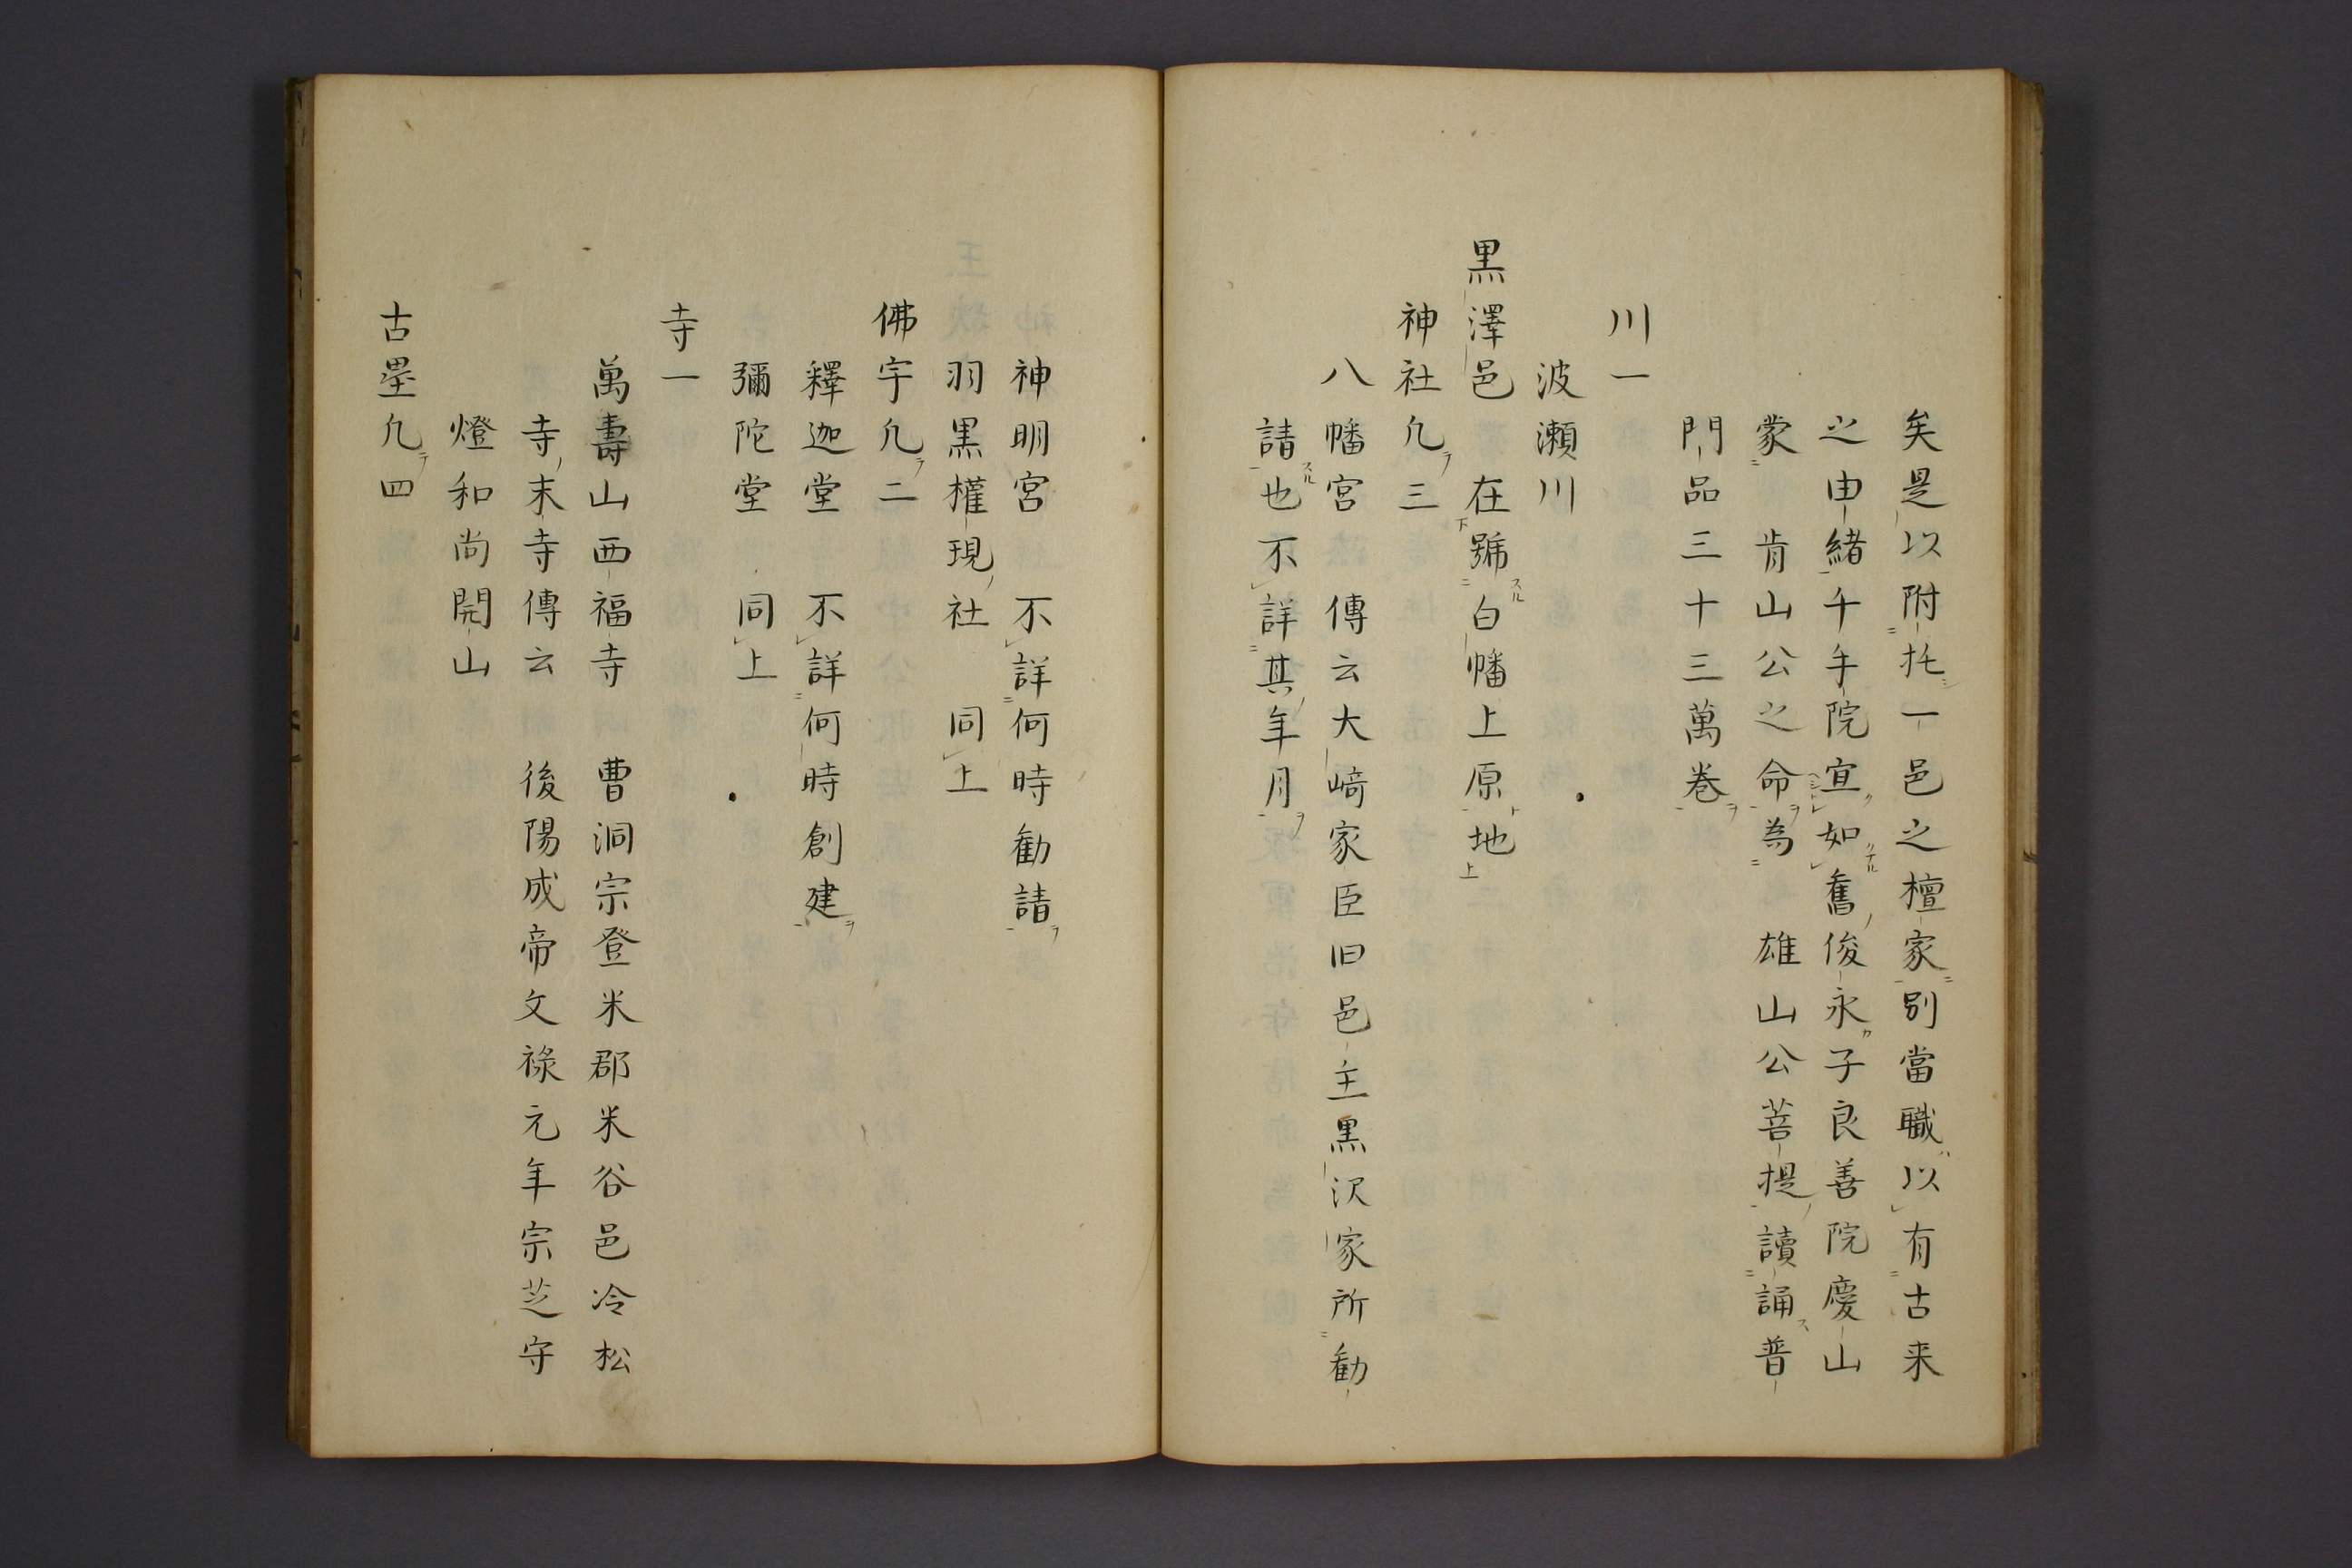 矣是以附托一邑之檀家別當職以有古来
之由緒千手院宣如舊俊永子良善院慶山
蒙　肯山公之命為　雄山公菩提讀誦普
門品三十三萬巻
川一
波瀬川
黒澤邑　在號白幡上原地
神社凢三
八幡宮　傳云大﨑家臣旧邑主黒沢家所勧
請也不詳其年月
神明宮　不詳何時勧請
羽黒權現社　同上
佛宇凢二
釋迦堂　不詳何時創建
彌陀堂　同上
寺一
萬壽山西福寺　曹洞宗登米郡米谷邑冷松
寺末寺傳云　後陽成帝文祿元年宗芝守
燈和尚開山
古壘凢四